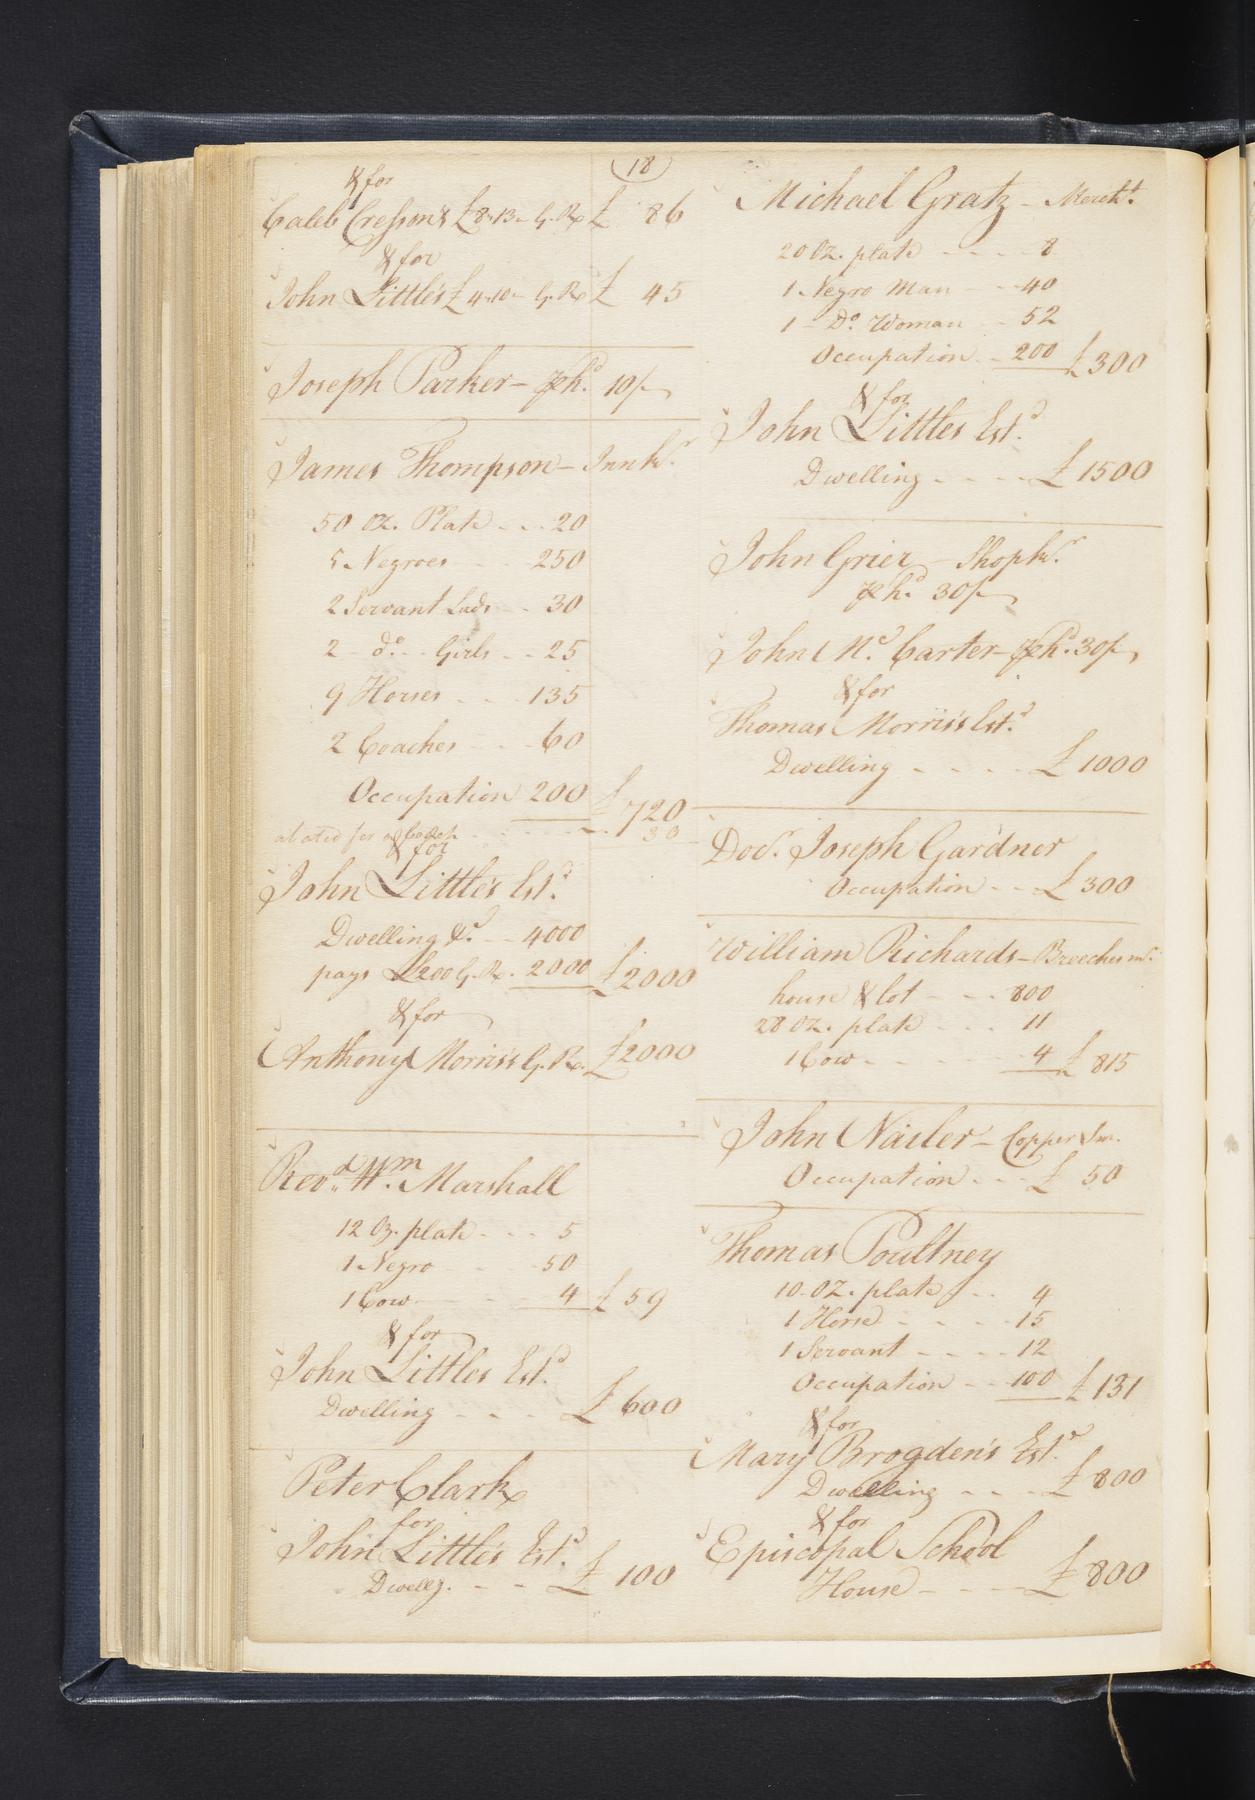 18
& for
Caleb Cresson's £8..13.. G. Rt £ 86
& for
John Little's £4..10.. G. Rt £ 45
Joseph Parker — ph.d 10/
James Thompson — Innkr.
50 oz. Plate - - 20
5 Negroes - - 250
2 Servant Lads - - 30
2 - do. - Girls - - 25
9 Horses - - - 135
2 Coaches - - - 60
Occupation 200 £ 720
abated for a Coach - - - 30
& for
John Little's Estd.
Dwelling &c. - - 4000
pays £200 G. Rt. 2000 £2000
& for
Anthony Morris's G. Rt. £2000
Revd. Wm. Marshall
12 Oz. plate - - - 5
1 Negro - - 50
1 Cow - - 4 £ 59
& for
John Littles Estd.
Dwelling - - - £ 600
Peter Clark
for
John Little's Estd.
Dwellg. - - £ 100
Michael Gratz - Mercht.
20 Oz. plate - - - - 8
1 Negro Man - - 40
1 - Do. Woman - - 52
Occupation - 200 £300
& for
John Littles Estd.
Dwelling - - - - £ 1500
John Grier - Shopkr.
ph.d 30/
John Mc. Carter - ph.d 30/
& for
Thomas Morris's Estd.
Dwelling - - - - £ 1000
Docr. Joseph Gardner
Occupation - - £ 300
William Richards - Breeches mr.
house & lot - - - 800
28 oz. plate - - - 11
1 Cow - - - - 4 £ 815
John Nailer - Copper Sm.
Occupation - - - £ 50
Thomas Poultney
10. OZ. plate - - 4
1 Horse - - - - 15
1 Servant - - - - 12
Occupation - - 100 £ 131
& for
Mary Brogden's Estd.
Dwelling - - - £ 800
& for
Episcopal School
House - - - - £ 800